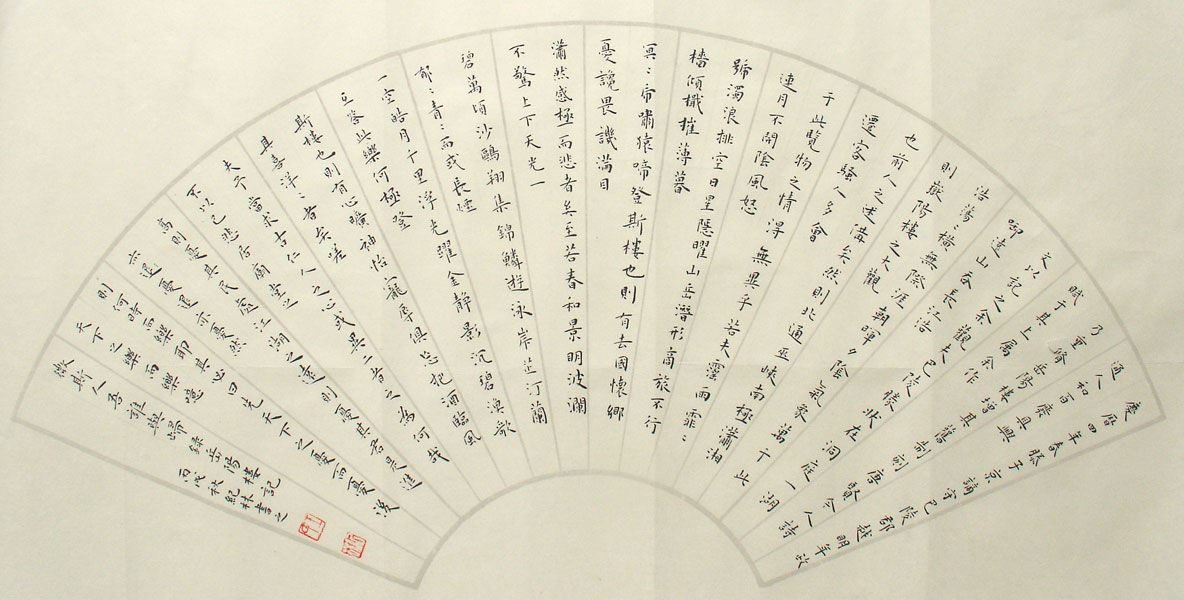 慶曆四年春滕子京謫守巴陵郡越明年政
通人和百廢具興
乃重修岳陽樓增其舊制刻唐賢今人詩
賦于其上屬余作
文以記之余觀夫巴陵勝狀在洞庭一湖
御遠山吞長江浩
浩蕩〻橫無際涯朝暉夕陰氣象萬千此
則嶽陽樓之大觀
也前人之述俻矣然則北通巫峽南極瀟湘
遷客騷人多會
于此覽物之情得無異乎若夫霪雨霏〻
連月不開陰風怒
號濁浪排空日星隱曜山岳潛形商旅不行
檣傾檝摧薄暮
冥〻帝嘯猿啼登斯樓也則有去國懷鄉
憂讒畏譏滿目
瀟然感極而悲者矣至若春和景明波瀾
不驚上下天光一
碧萬頃沙鷗翔集錦鱗遊泳岸芷汀蘭
郁〻青〻而或長煙
一空皓月千里浮光躍金靜影沉碧漁歌
互答此樂何極登
斯樓也則有心曠神怡寵辱俱忘把酒臨風
其喜洋〻者矣嗟
夫予當求古仁人之心或異二者之為何哉
不以己悲居廟堂之
高則憂其民處江湖之遠則憂其君是進
亦退憂退亦憂然
則何時而樂耶其必曰先天下之憂而憂後
天下之樂而樂噫
微斯人吾誰與歸錄岳陽樓記
丙戌秋紀林書之